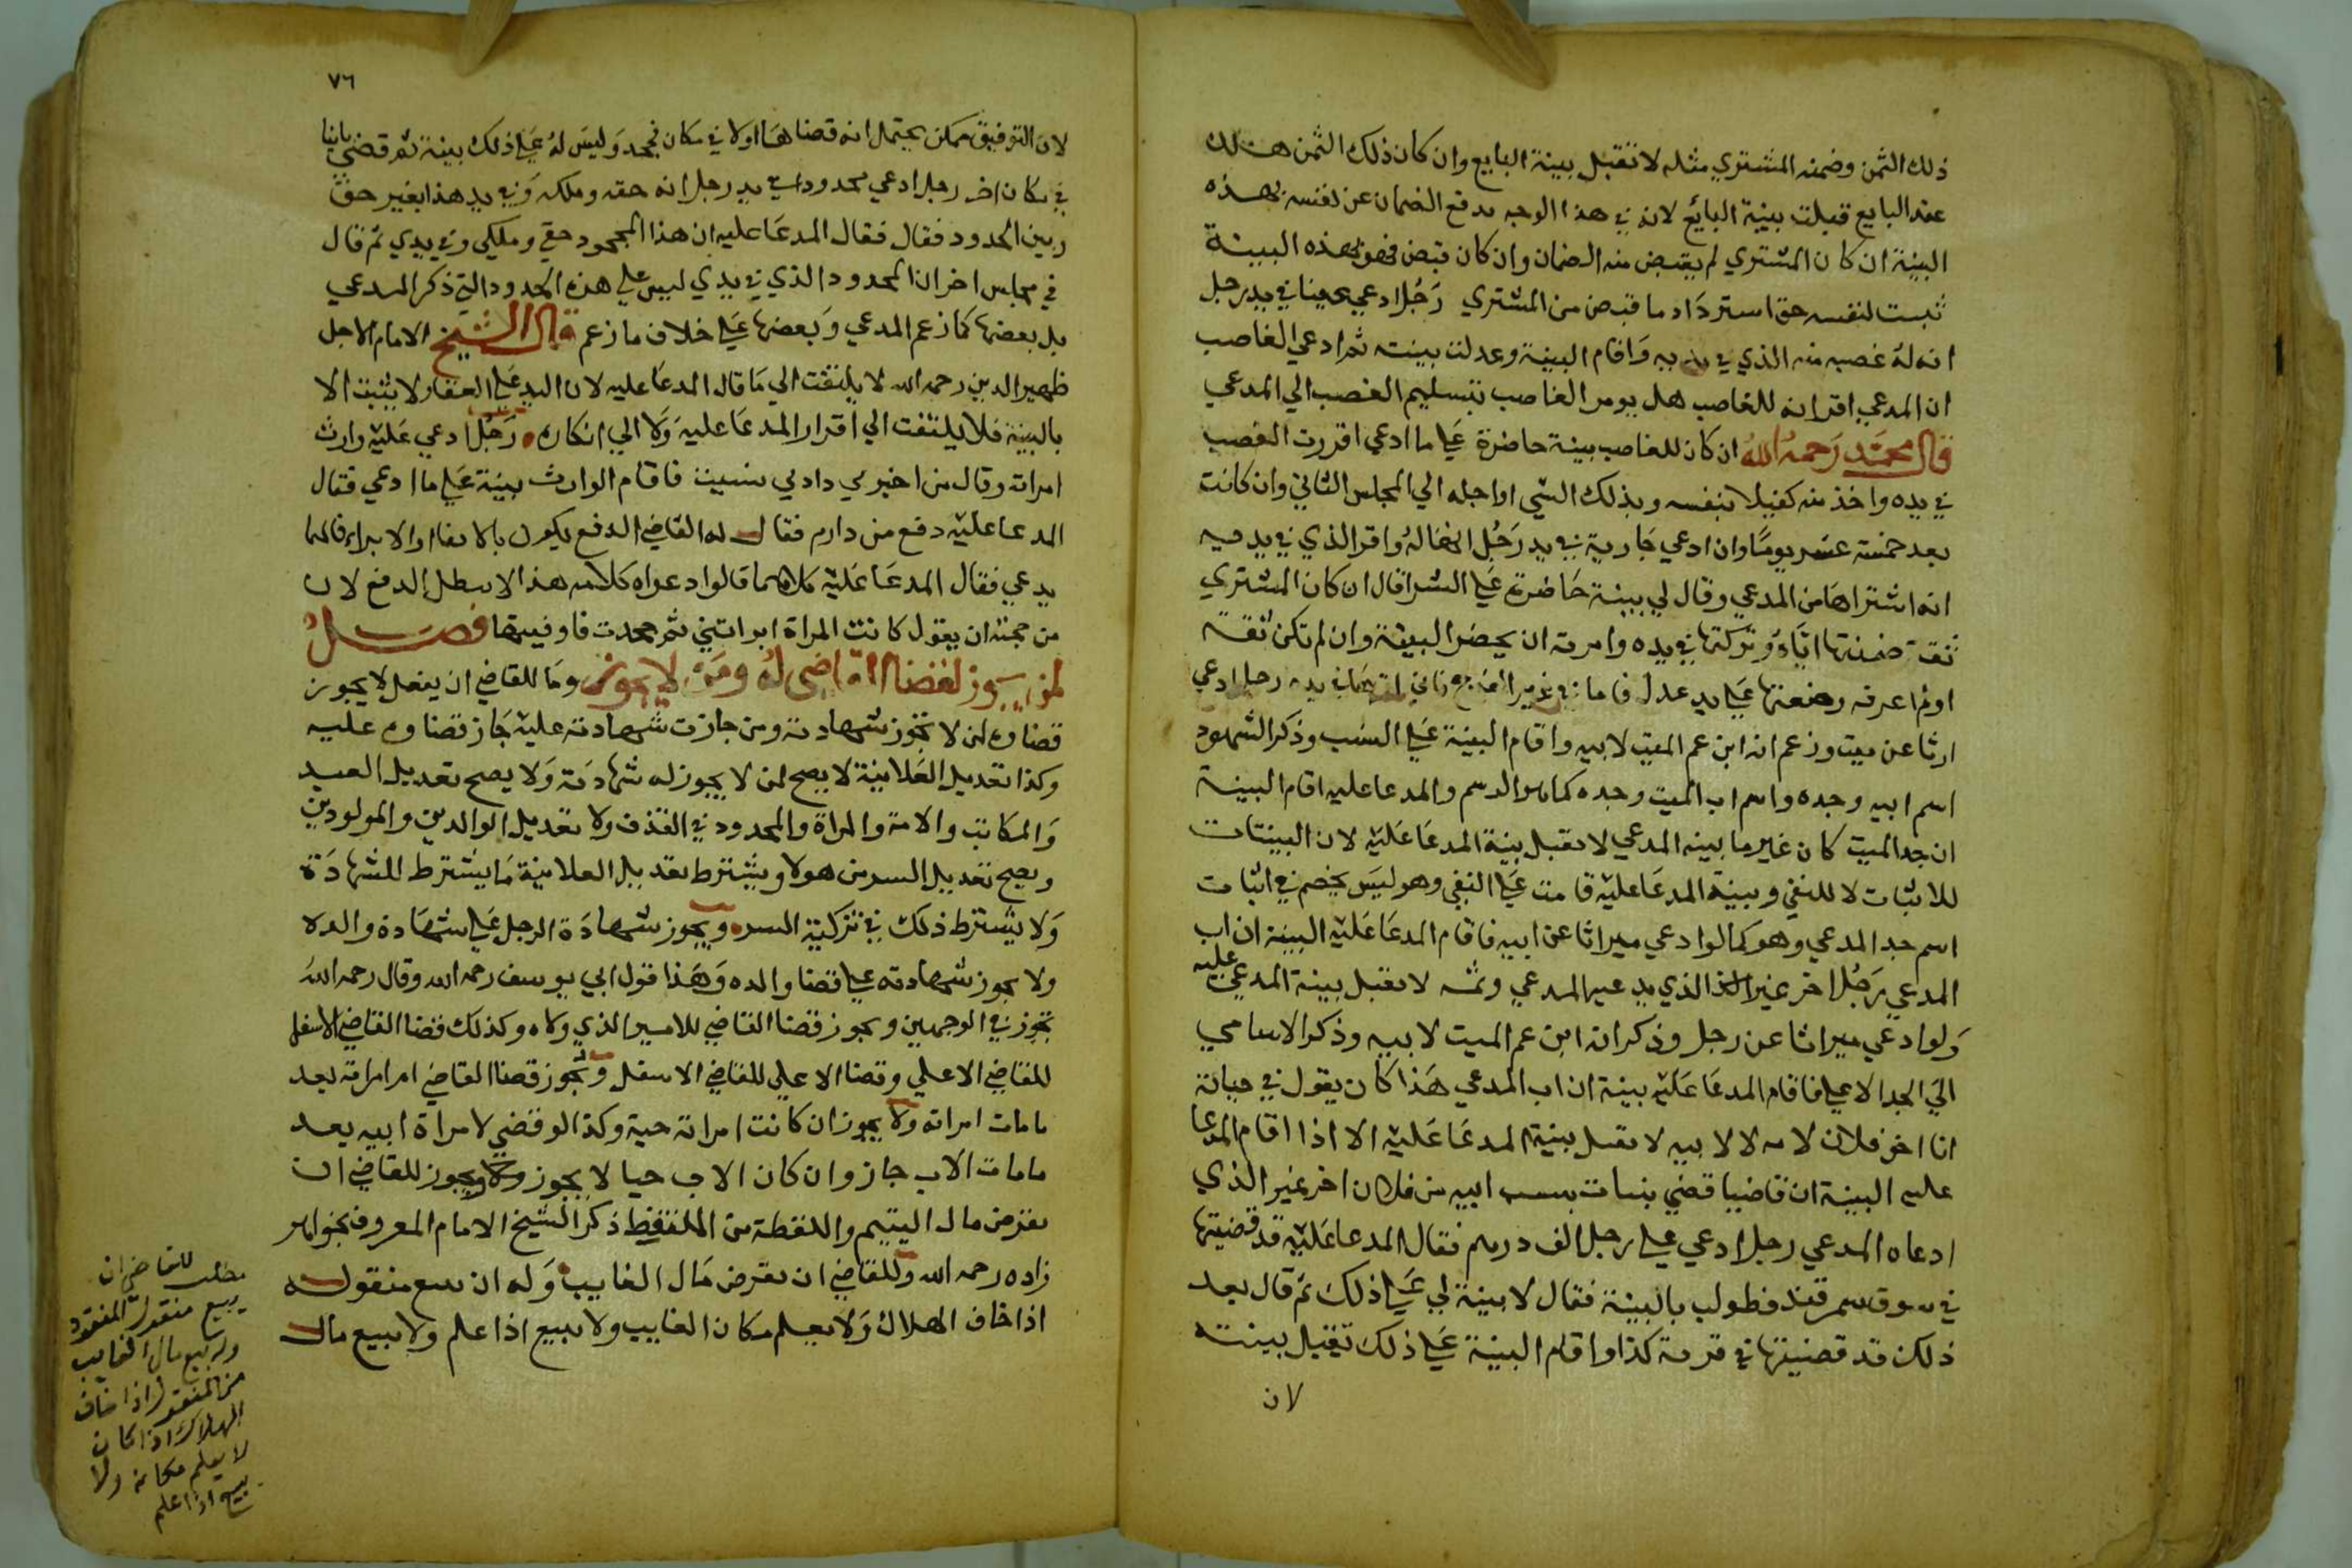 ذلك الثمن وضمنه المشتري مثله لا تقبل بينة البايع وان كان ذلك الثمن هلك
عند البايع قبلت بينة البائع لانه في هذا الوجه يدفع الضمان عن نفسه بهذه
البينة ان كان المشتري لم يقبض منه الضمان وان كان قبض فهو بهذه البينة
ثبت لنفسه حق استرداد ما قبض من المشتري رجل ادعي عينا في يد رجل
انه له غصبه منه الذي في يديه واقام البينة وعدلت بينته ثم ادعي الغاصب
ان المدعي اقر انه للغاصب هل يومر الغاصب بتسليم الغصب الي المدعي
قال محمد رحمه الله ان كان للغاصب بينة حاضرة علي ما ادعي اقررت الغصب
في يده واخذ منه كفيلا بنفسه وبذلك الشي اواجله الي المجلس الثاني وان كانت
بعد خمسة عشر يوما وان ادعي جارية في يد رجل انها له واقر الذي في يديه
انه اشتراها من المدعي وقال لي بينة حاضرة علي الشرا قال ان كان المشتري
ثقة ضمنتها اياه وتركتها في يده وامرته ان يحضر البينة وان لم تكن ثقة
اولم اعرفه وضعتها علي يد عدل فاما في غير في يده رجل ادعي
ارثا عن ميت وزعم انه ابن عم الميت لابيه واقام البينة علي النسب وذكر الشهود
اسم ابيه وجده واسم اب الميت وجده كما هو الرسم والمدعا عليه اقام البينة
ان جد الميت كان غير ما بينه المدعي لا تقبل بينة المدعا عليه لان البينات
للاثبات لا للنفي وبينة المدعا عليه قامت علي النفي وهو ليس بخصم في اثبات
اسم جد المدعي وهو كما لو ادعي ميراثا عن ابيه فاقام المدعا عليه البينة ان اب
المدعي رجل اخر غير الذي يدعيه المدعي وثمه لا تقبل بينة المدعي عليه
ولو ادعي ميراثا عن رجل وذكر انه ابن عم الميت لابيه وذكر الاسامي
الي الجد الاعلي فاقام المدعا عليه بينة ان اب المدعي هذا كان يقول في حياته
انا اخو فلان لامه لا لابيه لا تقبل بينة المدعا عليه الا اذا اقام المدعا
عليه البينة ان قاضيا قضي بنسب ابيه من فلان اخر غير الذي
ادعاه المدعي رجل ادعي علي رجل الف درهم فقال المدعا عليه قد قضيتها
في سوق سمرقند فطولب بالبينة فقال لا بينة لي علي ذلك ثم قال بعد
ذلك قد قضيتها في قرية كذا واقام البينة علي ذلك تقبل بينته
لان
٧٦
لان التوفيق ممكن يحتمل انه قضاها اولا في مكان فجحد وليس له علي ذلك بينة ثم قضي ثانيا
في مكان اخر رجل ادعي محدودا في يد رجل انه حقه وملكه وفي يد هذا بغير حق
وبين الحدود فقال فقال المدعا عليه ان هذا المحدود حقي وملكي وفي يدي ثم قال
في مجلس اخر ان المحدود الذي في يدي ليس علي هذه الحدود التي ذكر المدعي
بل بعضها كما زعم المدعي وبعضها علي خلاف ما زعم قال الشيخ الامام الاجل
ظهير الدين رحمه الله لا يلتفت الي ما قال المدعا عليه لان اليد علي العقار لا يثبت الا
بالبينة فلا يلتفت الي اقرار المدعا عليه ولا الي انكاره رجل ادعي عليه وارث
امراته وقال من اخبرني فاقام الوارث بينة علي ما ادعي فقال
المدعا عليه دفع من دارم فقال له القاضي الدفع يكون بالايفا او الابراء فايهما
يدعي فقال المدعا عليه كلاهما قالوا دعواه كلاهما هذا لا يبطل الدفع لان
من حجته ان يقول كانت المراة ابراتني ثم جحدت فاوفيتها فصل
لمن يجوز لقضا القاضي له ومن لا يجوز وما للقاضي ان يفعل لا يجوز
قضاوه لمن لا تجوز شهادته ومن جازت شهادته عليه جاز قضاوه عليه
وكذا تعديل العلانية لا يصح لمن لا يجوز له شهادته ولا يصح تعديل العبد
والمكاتب والامة والمراة والمحدود في القذف ولا تعديل الوالدين والمولودين
ويصح تعديل السر من هولا ويشترط بتعديل العلانية ما يشترط للشهادة
ولا يشترط ذلك في تزكية السر ويجوز شهادة الرجل علي شهادة والده
ولا يجوز شهادته علي قضا والده وهذا قول ابي يوسف رحمه الله وقال رحمه الله
تجوز في الوجهين ويجوز قضا القاضي للامير الذي ولاه وكذلك قضا القاضي الاسفل
للقاضي الاعلي وقضا الاعلي للقاضي الاسفل وتجوز قضا القاضي لام امراته بعد
ما مات امراته ولا يجوز ان كانت امراته حية وكذا لو قضي لامراة ابيه بعد
ما مات الاب جاز وان كان الاب حيا لا يجوز ويجوز للقاضي ان
يقرض مال اليتيم واللقطة من الملتقط ذكر الشيخ الامام المعروف بخواهر
زاده رحمه الله وللقاضي ان يقرض مال الغايب وله ان يبيع منقوله
اذا خاف الهلاك ولا يعلم مكان الغايب ولا يبيع اذا علم ولا يبيع مال
مطلب للقاضي ان
يبيع منقول المفقود
وله بيع مال الغايب
من المنقول اذا خاف
الهلاك اذا كان
لا يعلم مكانه ولا
يبيع اذا علم